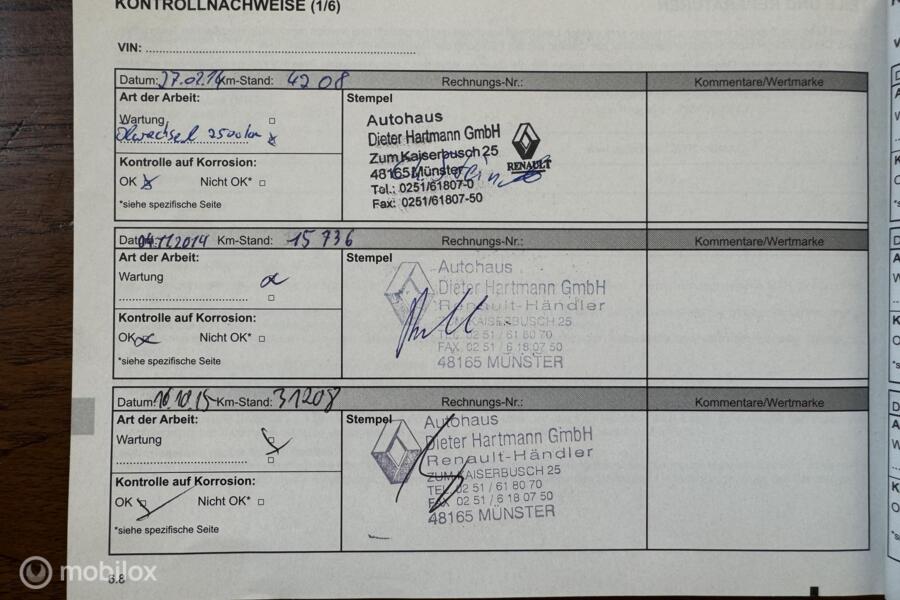 KONTROLLNACHWEISE (1/6)
VIN:
Datum: 27.02.14 Km-Stand: 4208 Rechnungs-Nr.: Kommentare/Wertmarke
Art der Arbeit: Stempel
Wartung
Ölwechsel 2500km
Kontrolle auf Korrosion:
OK Nicht OK*
*siehe spezifische Seite
Autohaus
Dieter Hartmann GmbH
Zum Kaiserbusch 25
48165 Münster
Tel.: 0251/61807-0
Fax: 0251/61807-50
RENAULT
Datum: 04.11.2014 Km-Stand: 15 736 Rechnungs-Nr.: Kommentare/Wertmarke
Art der Arbeit: Stempel
Wartung
Kontrolle auf Korrosion:
OK Nicht OK*
*siehe spezifische Seite
Autohaus
Dieter Hartmann GmbH
Renault-Händler
ZUM KAISERBUSCH 25
TEL. 02 51 / 61 80 70
FAX 02 51 / 6 18 07 50
48165 MÜNSTER
Datum: 16.10.15 Km-Stand: 31208 Rechnungs-Nr.: Kommentare/Wertmarke
Art der Arbeit: Stempel
Wartung
Kontrolle auf Korrosion:
OK Nicht OK*
*siehe spezifische Seite
Autohaus
Dieter Hartmann GmbH
Renault-Händler
ZUM KAISERBUSCH 25
TEL. 02 51 / 61 80 70
FAX 02 51 / 6 18 07 50
48165 MÜNSTER
6.8
mobilox